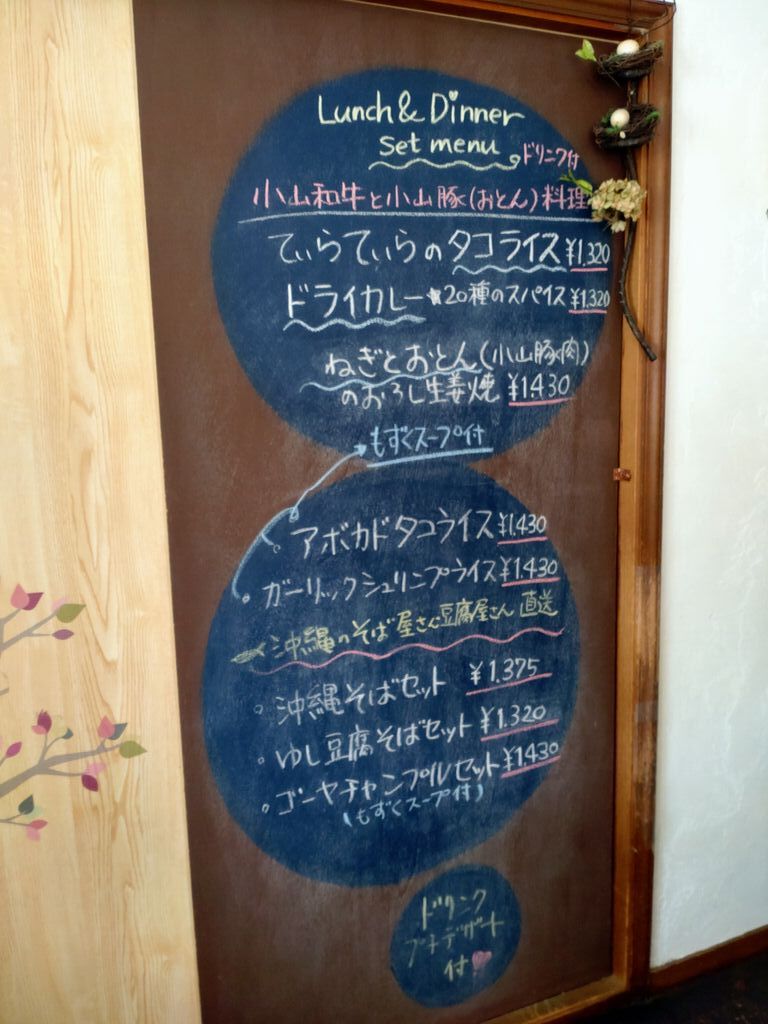 Lunch & Dinner
set menu ドリンク付
小山和牛と小山豚(おとん)料理
てぃらてぃらのタコライス ¥1.320
ドライカレー★20種のスパイス ¥1.320
ねぎとおとん(小山豚肉)
のおろし生姜焼 ¥1.430
もずくスープ付
アボカドタコライス ¥1.430
ガーリックシュリンプライス ¥1.430
沖縄のそば屋さん豆腐屋さん 直送
沖縄そばセット ¥1.375
ゆし豆腐そばセット ¥1.320
ゴーヤチャンプルセット ¥1.430
(もずくスープ付)
ドリンク
プチデザート
付♥